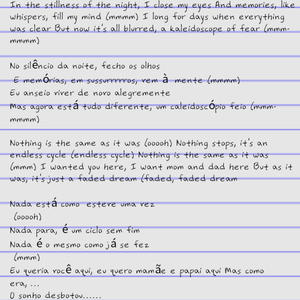 In the stillness of the night, I close my eyes And memories, like
whispers, fill my mind (mmm) I long for days when everything
was clear But now it's all blurred, a kaleidoscope of fear (mmm-
mmmm)
No silêncio da noite, fecho os olhos
E memórias, em sussurrrrros, vem à mente (mmmm)
Eu anseio viver de novo alegremente
Mas agora está tudo diferente, um caleidoscópio feio (mmm-
mmmm)
Nothing is the same as it was (ooooh) Nothing stops, it's an
endless cycle (endless cycle) Nothing is the same as it was
(mmm) I wanted you here, I want mom and dad here But as it
was, it's just a faded dream (faded, faded dream
Nada está como esteve uma vez
(ooooh)
Nada para, é um ciclo sem fim
Nada é o mesmo como já se fez
(mmm)
Eu queria rocê aqui, eu quero mamãe e papai aqui Mas como
era, ...
O sonho desbotou......